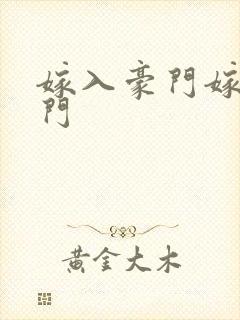 嫁入豪門嫁
門
黃金大木